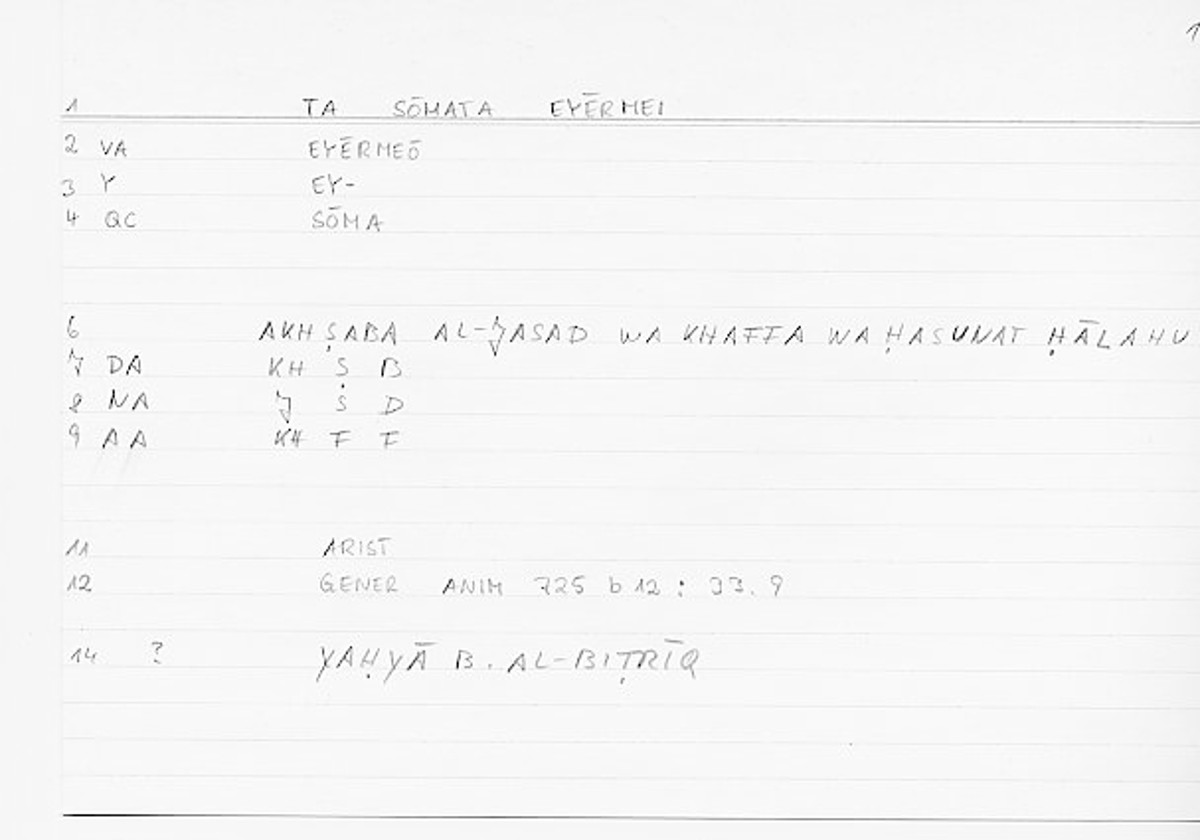 1
1 TA SŌMATA EYĒRMEI
2 VA EYĒRMEŌ
3 Y EY-
4 QC SŌMA
6 AKHṢABA AL-JASAD WA KHAFFA WA ḤASUNAT ḤĀLAHU
7 DA KH Ṣ B
8 NA J S D
9 AA KH F F
11 ARIST
12 GENER ANIM 725 b 12 : 33.9
14 ? YAḤYĀ B. AL-BIṬRĪQ